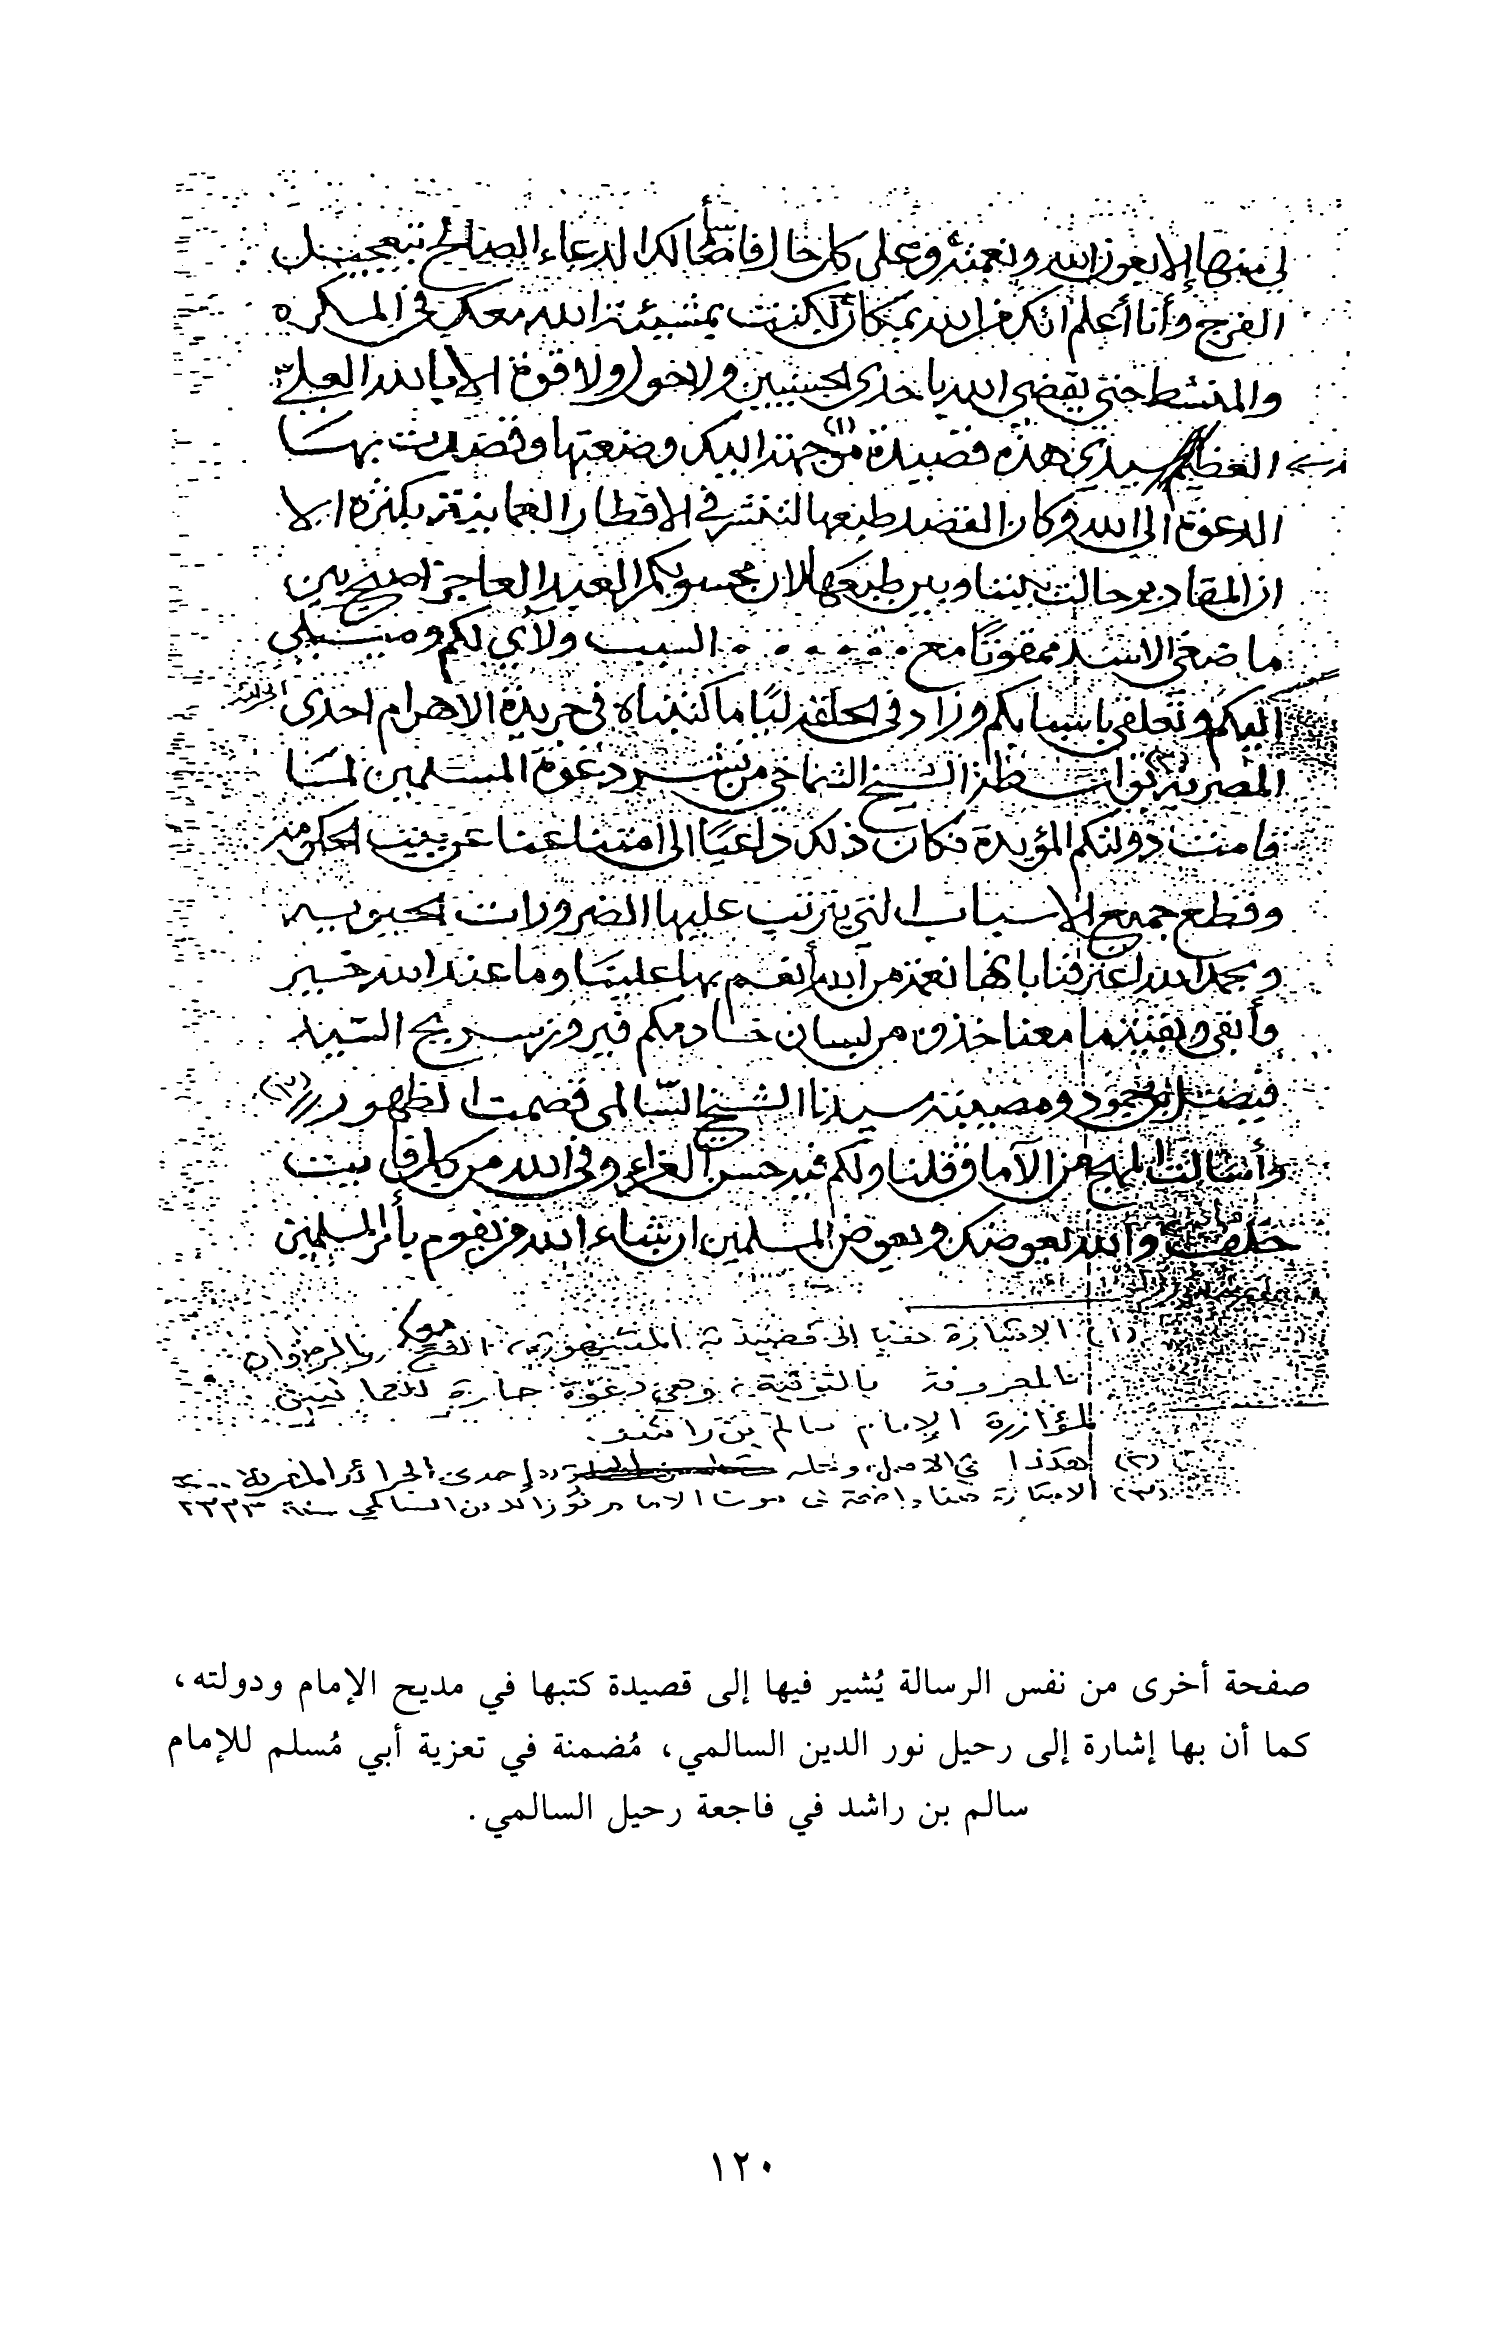 لي منها إلا بعون الله وبعمنه وعلى كل حال فأسألك الدعاء الصالح بتعجيل
الفرج وأنا أعلم انك من الله بمكان لكنت بمشيئة الله معك في المكره
والمنشط حتى يقضي الله باحدى الحسنيين ولا حول ولا قوة الا بالله العلي
العظيم سيدي هذه قصيدة موجهة اليك وضعتها وقصدت بها (١)
الدعوة الى الله وكان القصد طبعها لتنتشر في الاقطار العمانية بكثرة الا
ان المقادير حالت بيننا وبين طبعها لان محسوبكم العبد العاجز اصبح بين
ماضغي الاسد ممقوتا مع . . . . . السبب ولآي لكم وميلي
اليكم وتعلقي باسبابكم وزاد في الحلقة ما كتبناه في جريدة الاهرام احدى الجرائد
المصرية (٢) بواسطة الشيخ الشماخي من نشر دعوة المسلمين لما
قامت دولتكم المؤيدة فكان ذلك داعيا الى امتناعنا عن بيت الحكومة
وقطع جميع الاسباب التي يترتب عليها الضرورات
وبحمد الله اعترفنا بانها نعمة من الله أنعم بها علينا وما عند الله خير
وأبقى وبقية ما معنا خذوه من لسان خادمكم فيروز سريح السيد
ومصيبة سيدنا الشيخ السالمي قصمت الظهور (٣)
وأسالت المهج من الآماق فلنا ولكم فيه حسن العزاء وفي الله من كل فايت
خلف والله يعوضك ويعوض المسلمين ان شاء الله من يقوم بأمر المسلمين
(١) الإشارة هنا إلى قصيدته المشهورة، الفتح والرضوان
المعروفة بالنونية، وهي دعوة حارة للعمانيين
لمؤازرة الإمام سالم بن راشد.
(٢) هكذا في الاصل، ولعله إحدى الجرائد المصرية ...
(٣) الاشارة هنا واضحة في موت الامام نور الدين السالمي سنة ١٣٣٢
صفحة أخرى من نفس الرسالة يُشير فيها إلى قصيدة كتبها في مديح الإمام ودولته،
كما أن بها إشارة إلى رحيل نور الدين السالمي، مُضمنة في تعزية أبي مُسلم للإمام
سالم بن راشد في فاجعة رحيل السالمي.
١٢٠